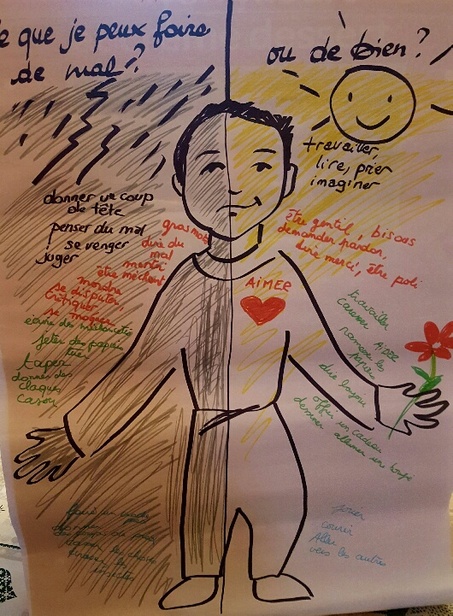 e que je peux faire
de mal ?
ou de bien ?
travailler,
lire, prier
imaginer
donner un coup
de tête
penser du mal
se venger
juger
gros mots
dire du
mal
mentir
être méchant
mordre
se disputer,
critiquer
se moquer
être gentil, bisous
demander pardon,
dire merci, être poli
AIMER
écrire des méchancetés
jeter des papiers
tuer
taper
donner des
claques
casser
travailler
caresser aider
ramasser les
papiers
dire bonjour
offrir un cadeau
dessiner allumer une bougie
jouer
courir
Aller
vers les autres